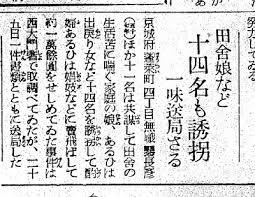 田舎娘など
十四名も誘拐
一味送局さる
京城府蓬莱町四丁目無職
ほか十一名は共謀して田舎の
生活苦に喘ぐ家庭の娘、あるひは
出戻り女など十四名を誘拐して酌
婦あるひは娼妓などに賣飛ばして
約一萬餘圓をせしめてゐた事件は
西大門署で取調べてゐたが、二十
五日一件書類とともに送局した